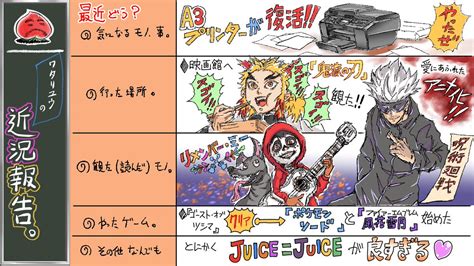 ワタリユウの
近況報告。
最近どう？
①気になるモノ、事。
A3
プリンターが
復活!!
やったぜ!!
②行った場所。
映画館へ
「鬼滅の刃」
観た!!
③観た(読んだ)モノ。
リメンバー・ミー
愛にあふれた
アニメ化!!
呪術廻戦
④やったゲーム。
『ゴースト・オブ・
ツシマ』
クリア
→
『ポケモン
ソード』
と
『ファイアーエムブレム
風花雪月』
始めた
⑤その他なんでも
とにかく
JUICE=JUICE
が
良すぎる